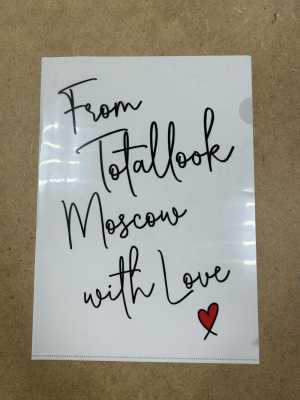 From
Totallook
Moscow
with Love